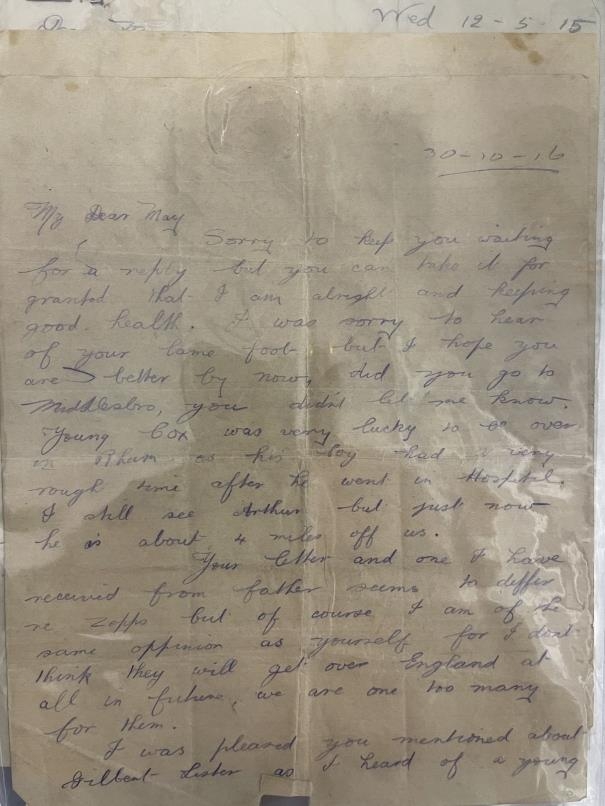 Wed 12-5-15
30-10-16
My Dear May
Sorry to keep you waiting
for a reply but you can take it for
granted that I am alright and keeping
good health. I was sorry to hear
of your lame foot but I hope you
are better by now, did you go to
Middlesbro, you didn't let me know.
Young Cox was very lucky to be over
in Bham as his Coy had a very
rough time after he went in Hospital.
I still see Arthur but just now
he is about 4 miles off us.
Your letter and one I have
received from father seems to differ
re Zepps but of course I am of the
same oppinion as yourself for I dont
think they will get over England at
all in future, we are one too many
for them.
I was pleased you mentioned about
Gilbert Lister as I heard of a young